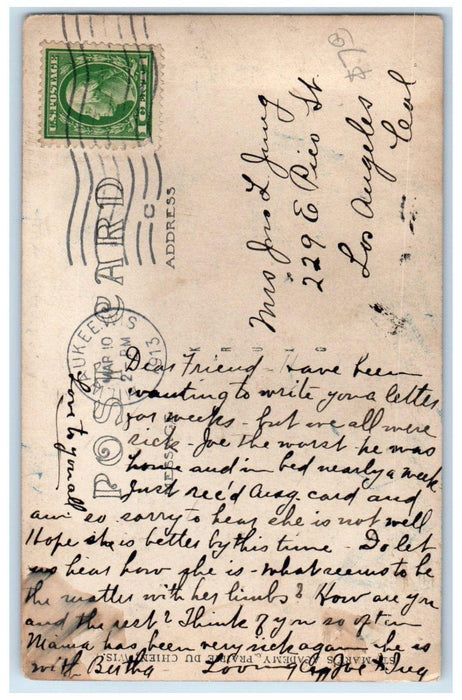 U.S. POSTAGE
1 CENT 1
POST CARD
ADDRESS
MESSAGE
C
AUKEE, WIS
MAR 10
PM
1913
Mrs Jos L Jung
229 E Pico St.
Los Angeles
Cal
Dear Friend - Have been
wanting to write you a letter
for weeks - but we all were
sick - Joe the worst he was
home and in bed nearly a week
Just rec'd Aug. card and
am so sorry to hear she is not well
Hope she is better by this time - Do let
us hear how she is - what seems to be
the matter with her limbs? How are you
and the rest? Think of you so often
Mama has been very sick again she is
with Bertha Loving
Love to you all
ST. MARY'S ACADEMY, PRAIRIE DU CHIEN, WIS.